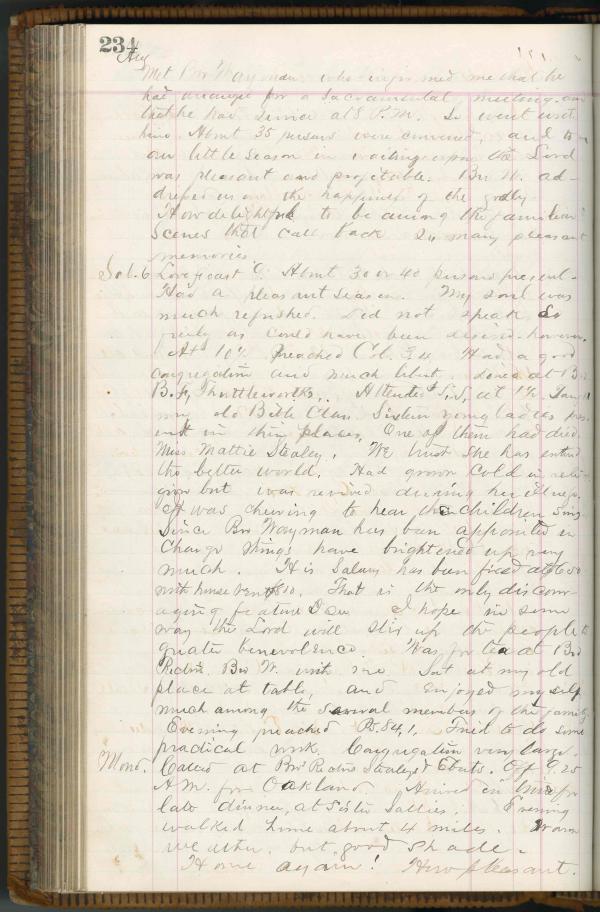 234
Aug
Met Bro Wayman who informed me that he
had arranged for a sacramental meeting. and
that he had dinner at 5 P.M. So went with
him. About 35 persons were convened, and to
our little season in waiting upon the Lord
was pleasant and profitable. Bro W. ad-
dressed us on the happiness of the godly
How delightful to be among the familiar
scenes that call back so many pleasant
memories.
Sab. 6 Lovefeast 9. About 30 or 40 persons present.
Had a pleasant season. My soul was
much refreshed. Did not speak so
freely as could have been desired however.
At 10½ preached Col. 3:4. Had a good
congregation and much liberty. Dined at Bro
B. F. Shuttleworths. Attended S.S. at 1½. Taught
my old Bible Class. Sixteen young ladies pres-
ent in their places. One of them had died.
Miss Mattie Staley. We trust she has entered
the better world. Had grown cold in reli-
gion but was revived during her illness.
It was cheering to hear the children sing.
Since Bro Wayman has been appointed in
charge things have brightened up very
much. His Salary has been fixed at 650
with house rent 810. That is the only discour-
aging feature I see. I hope in some
way the Lord will stir up the people to
greater benevolence. Was for tea at Bro
Rectors. Bro W. with me. Sat at my old
place at table, and enjoyed myself
much among the several members of the family
Evening preached Ps. 84,1. Tried to do some
practical work. Congregation very large.
Mond. Called at Bros Rectors Staleys & Eberts. Off 9.25
A.M. for Oakland. Arrived in time for
late dinner, at Sister Sallies. Evening
walked home about 4 miles. Warm
weather, but good shade.
Home again! How pleasant.